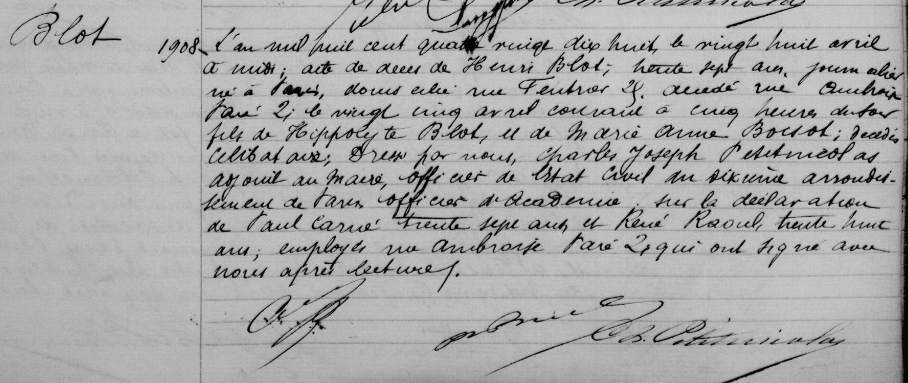 Blot
1908
L'an mil huit cent quatre vingt dix huit, le vingt huit avril
à midi; acte de décès de Henri Blot; trente sept ans, journalier
né à Paris, domicilié rue Feutrier 28, décédé rue Ambroise
Paré 2; le vingt cinq avril courant à cinq heures du soir
fils de Hippolyte Blot, et de Marie Anne Boisot; décédés
Célibataire; Dressé par nous, Charles Joseph Petitnicolas
adjoint au Maire, officier de l'état civil du dixième arrondis-
sement de Paris officier d'Académie sur la déclaration
de Paul Carné trente sept ans, et René Raoul, trente huit
ans; employés rue Ambroise Paré 2, qui ont signé avec
nous après lecture.
Ch. Petitnicolas